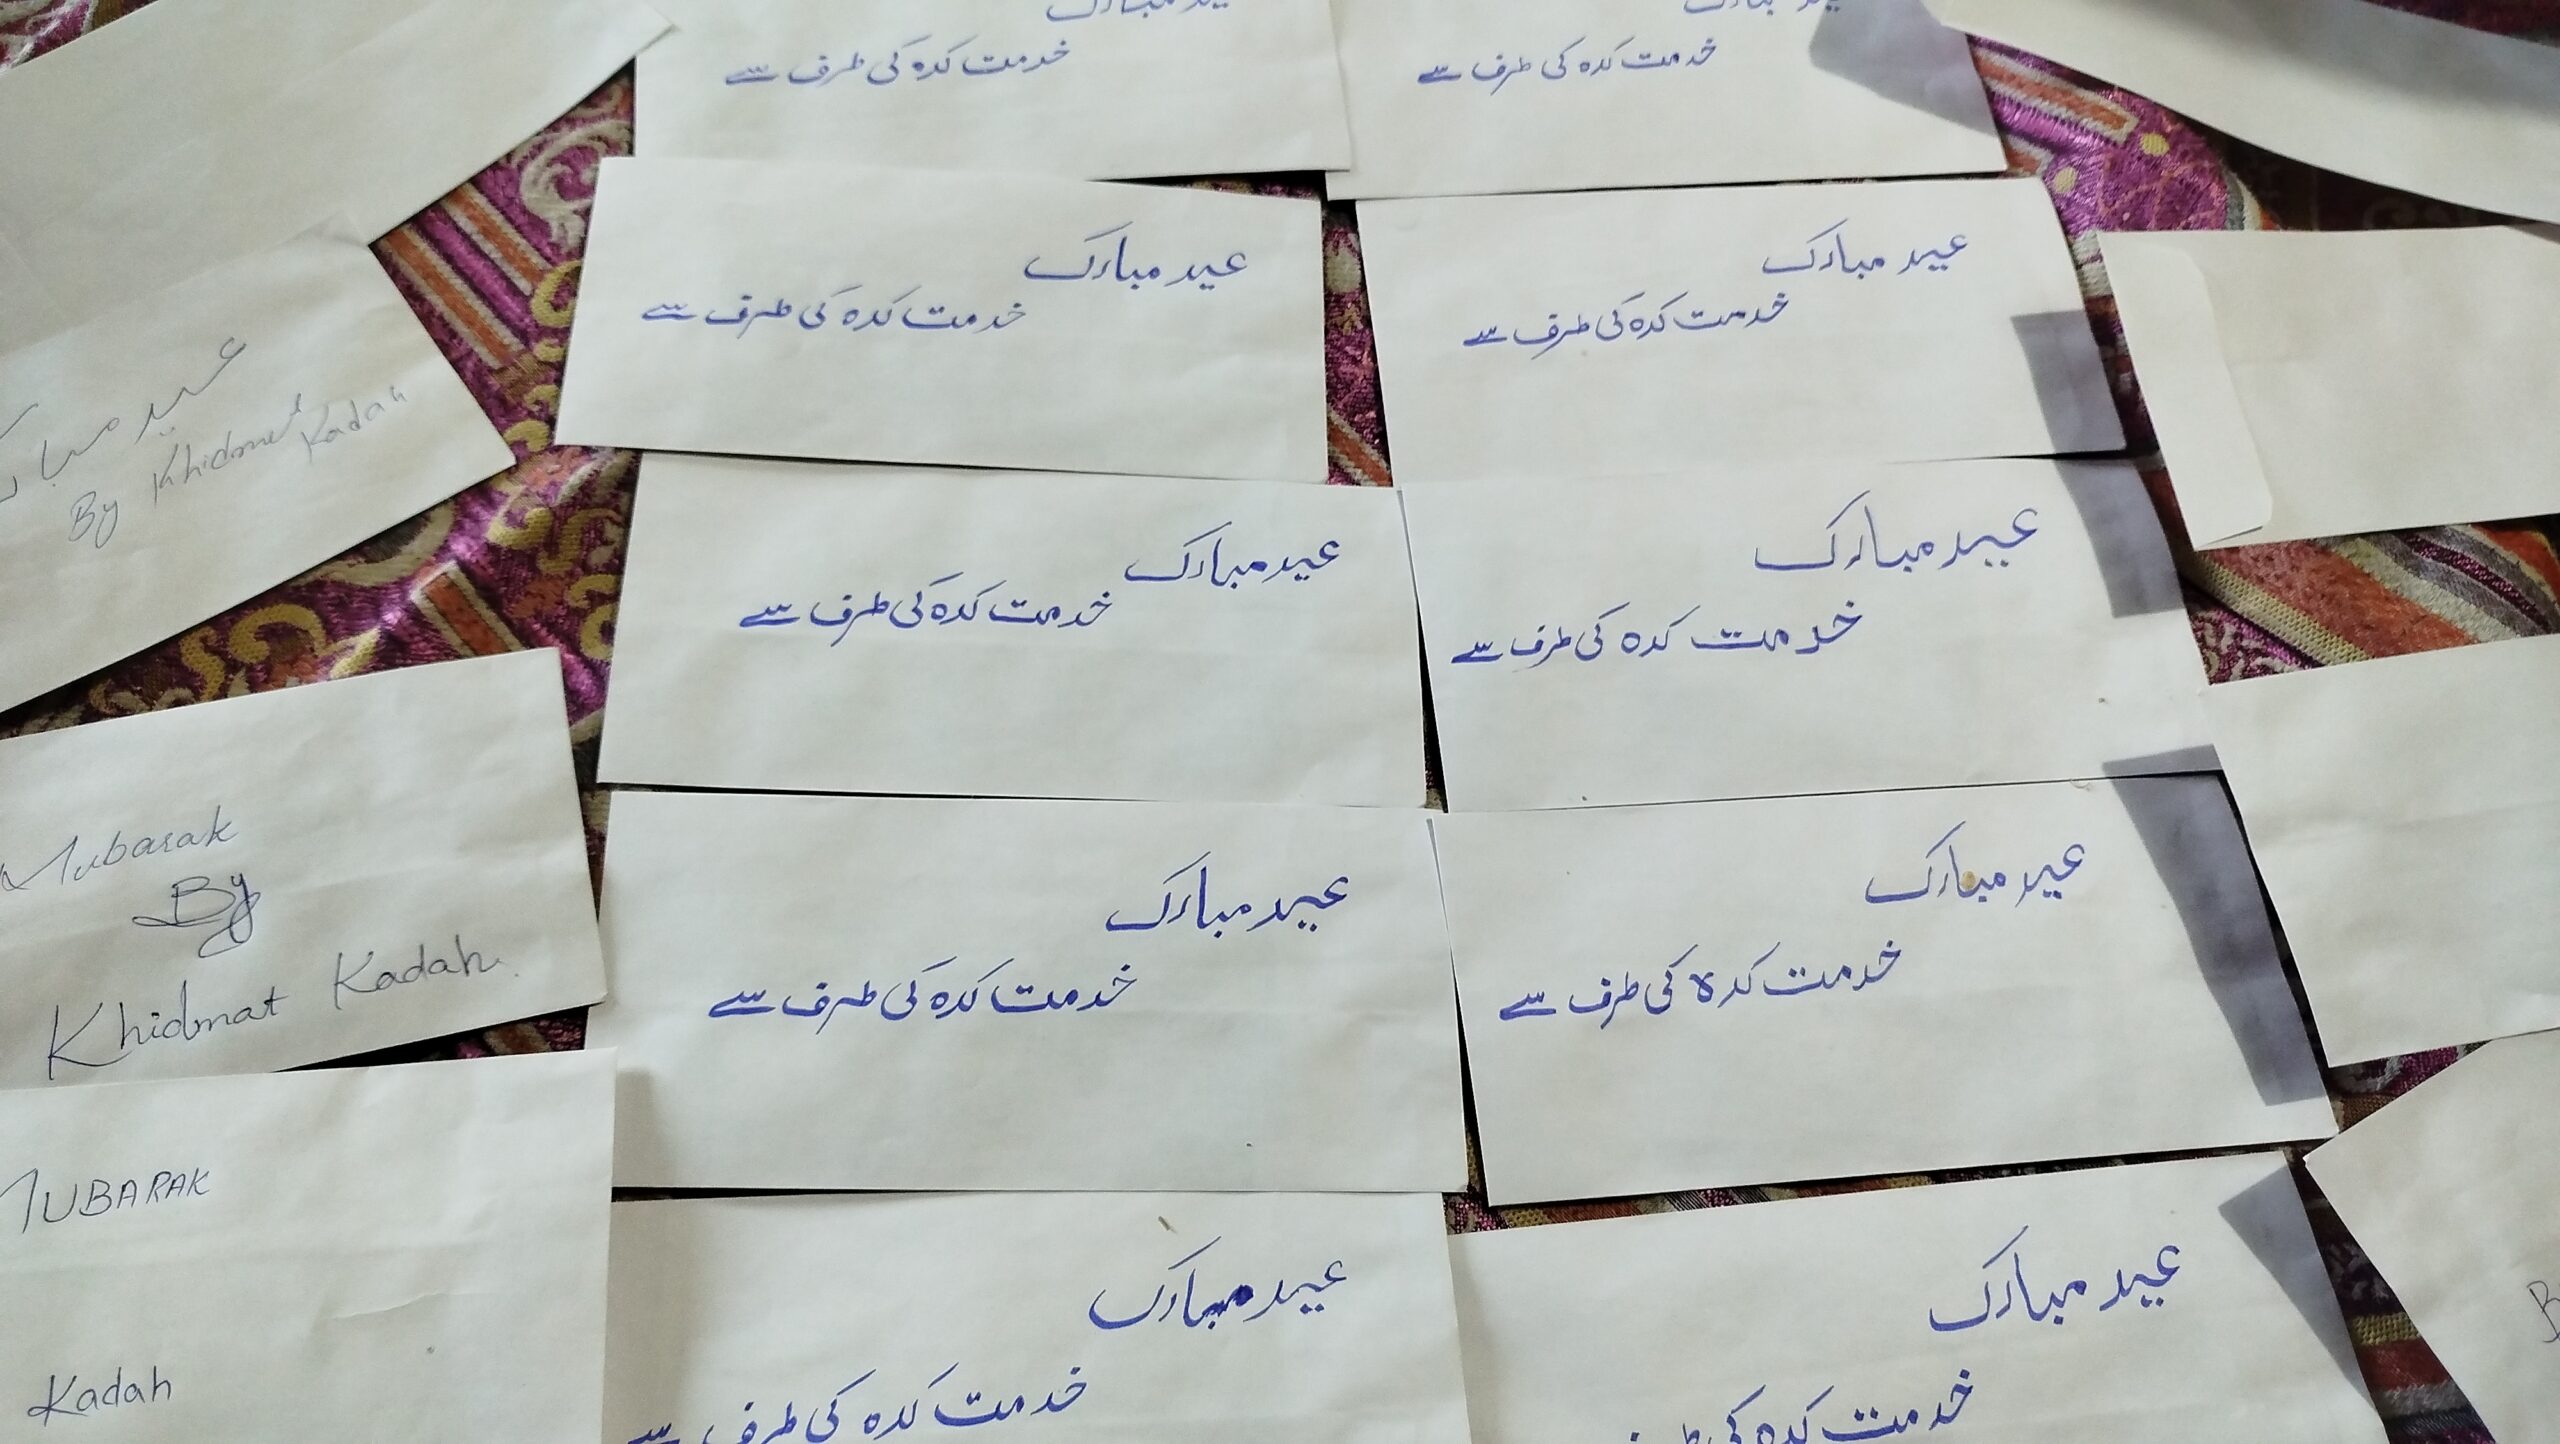 عید مبارک
خدمت کدہ کی طرف سے
عید مبارک
خدمت کدہ کی طرف سے
عید مبارک
خدمت کدہ کی طرف سے
عید مبارک
خدمت کدہ کی طرف سے
عید مبارک
By Khidmat
Kadah
عید مبارک
خدمت کدہ کی طرف سے
عید مبارک
خدمت کدہ کی طرف سے
Mubarak
By
Khidmat Kadah
عید مبارک
خدمت کدہ کی طرف سے
عید مبارک
خدمت کدہ کی طرف سے
MUBARAK
Kadah
عید مبارک
خدمت کدہ کی طرف سے
عید مبارک
خدمت کدہ کی